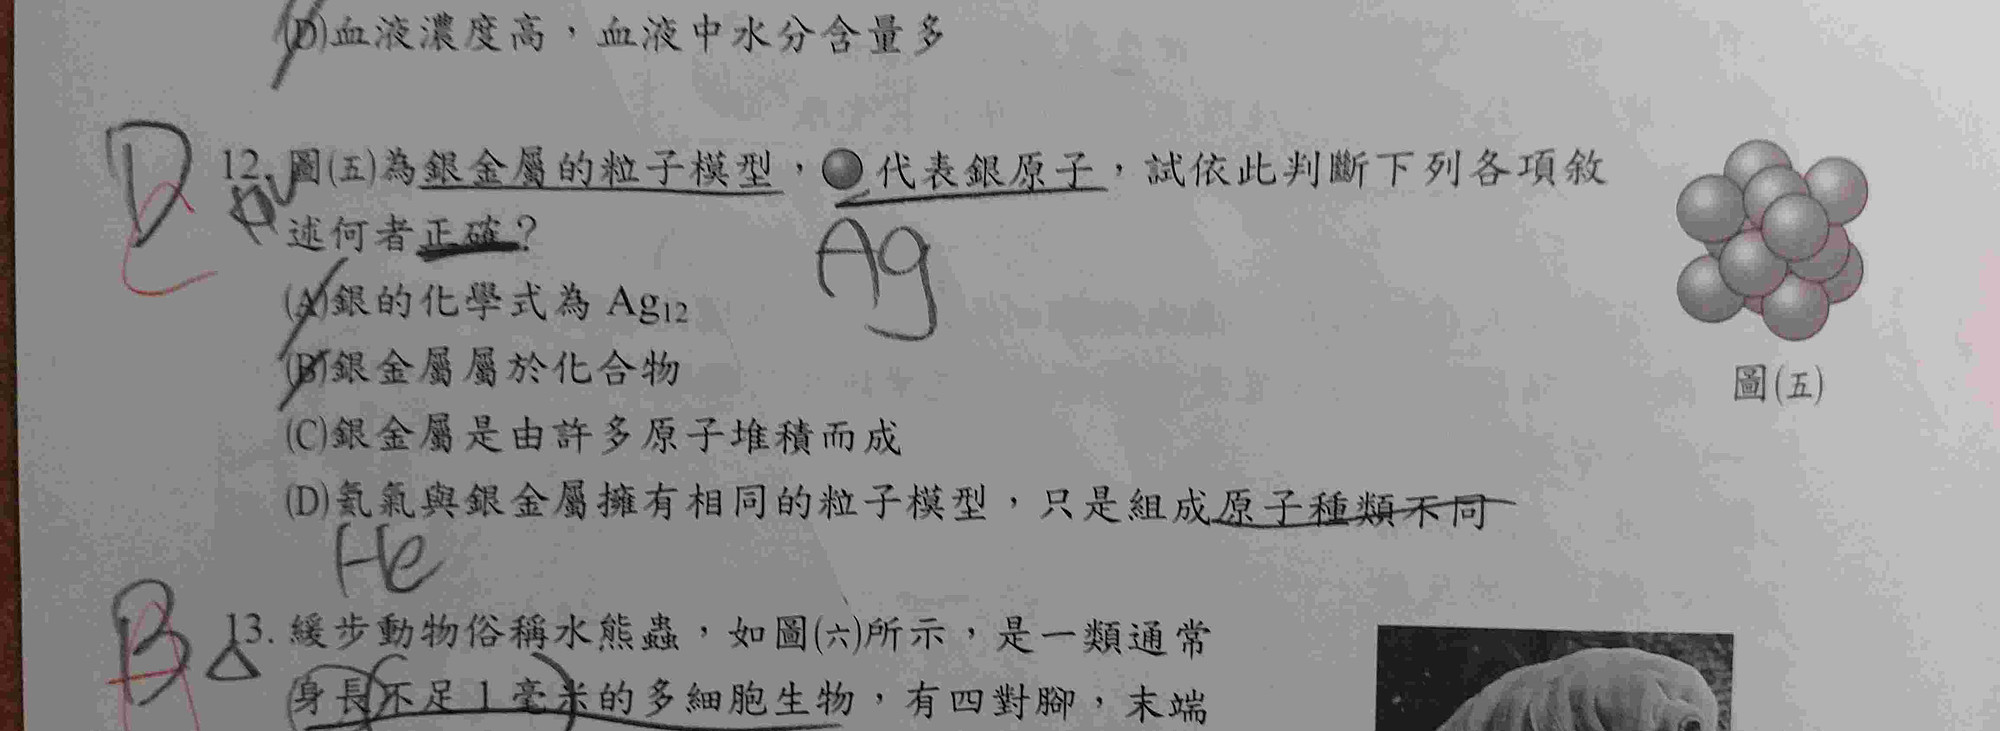 (D)血液濃度高，血液中水分含量多
D
C
12. 圖(五)為銀金屬的粒子模型，代表銀原子，試依此判斷下列各項敘
述何者正確？
Ag
(A)銀的化學式為 Ag₁₂
(B)銀金屬屬於化合物
(C)銀金屬是由許多原子堆積而成
(D)氦氣與銀金屬擁有相同的粒子模型，只是組成原子種類不同
He
圖(五)
B
13. 緩步動物俗稱水熊蟲，如圖(六)所示，是一類通常
身長不足 1 毫米的多細胞生物，有四對腳，末端